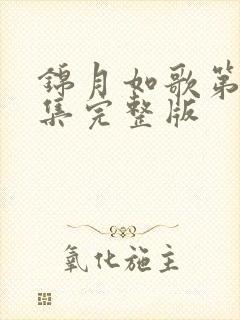 錦月如歌第
集完整版
氧化施主